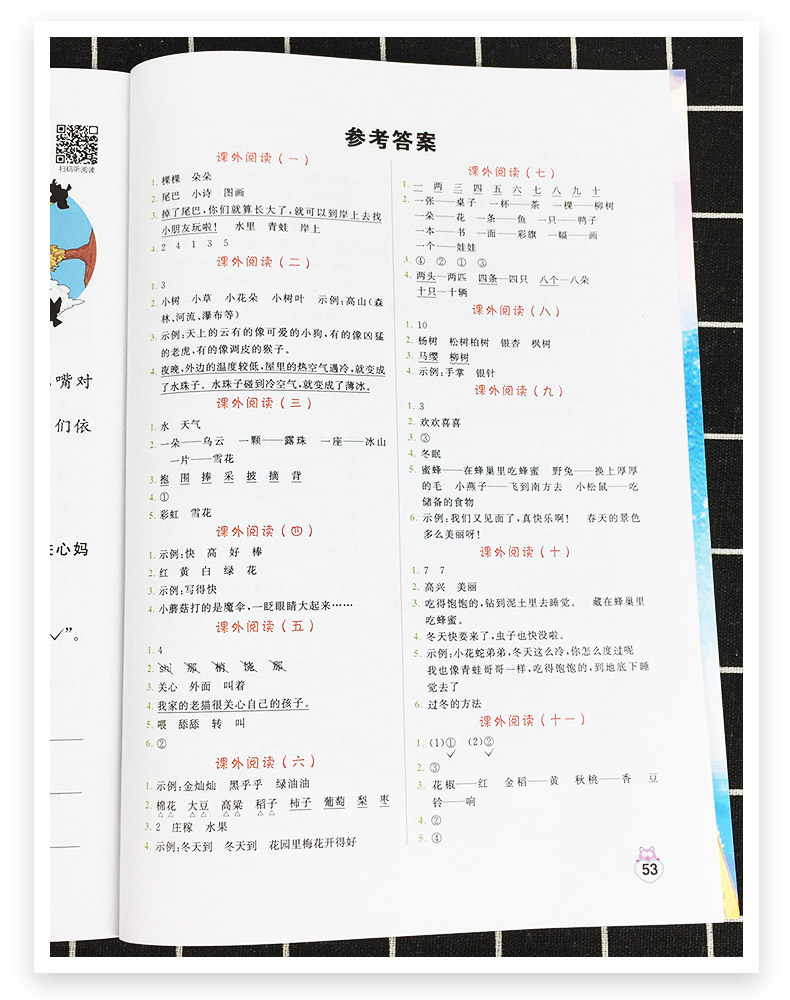 扫码听阅读
嘴对
们依
关心妈
”。
参考答案
课外阅读(一)
1. 棵棵 朵朵
2. 尾巴 小诗 图画
3. 掉了尾巴,你们就算长大了,就可以到岸上去找
小朋友玩啦! 水里 青蛙 岸上
4. 2 4 1 3 5
课外阅读(二)
1. 3
2. 小树 小草 小花朵 小树叶 示例:高山(森
林、河流、瀑布等)
3. 示例:天上的云有的像可爱的小狗,有的像凶猛
的老虎,有的像调皮的猴子。
4. 夜晚,外边的温度较低,屋里的热空气遇冷,就变成
了水珠子。水珠子碰到冷空气,就变成了薄冰。
课外阅读(三)
1. 水 天气
2. 一朵——乌云 一颗——露珠 一座——冰山
一片——雪花
3. 抱 围 捧 采 披 摘 背
4. ①
5. 彩虹 雪花
课外阅读(四)
1. 示例:快 高 好 棒
2. 红 黄 白 绿 花
3. 示例:写得快
4. 小蘑菇打的是魔伞,一眨眼睛大起来……
课外阅读(五)
1. 4
2. shí 那 稍 饶 那
3. 关心 外面 叫着
4. 我家的老猫很关心自己的孩子。
5. 喂 舔舔 转 叫
6. ②
课外阅读(六)
1. 示例:金灿灿 黑乎乎 绿油油
2. 棉花 大豆 高粱 稻子 柿子 葡萄 梨 枣
3. 2 庄稼 水果
4. 示例:冬天到 冬天到 花园里梅花开得好
课外阅读(七)
1. 一 两 三 四 五 六 七 八 九 十
2. 一张——桌子 一杯——茶 一棵——柳树
一朵——花 一条——鱼 一只——鸭子
一本——书 一面——彩旗 一幅——画
一个——娃娃
3. ④ ② ① ③
4. 两头—两匹 四条—四只 八个—八朵
十只—十辆
课外阅读(八)
1. 10
2. 杨树 松树柏树 银杏 枫树
3. 马缨 柳树
4. 示例:手掌 银针
课外阅读(九)
1. 3
2. 欢欢喜喜
3. ③
4. 冬眠
5. 蜜蜂——在蜂巢里吃蜂蜜 野兔——换上厚厚
的毛 小燕子——飞到南方去 小松鼠——吃
储备的食物
6. 示例:我们又见面了,真快乐啊! 春天的景色
多么美丽呀!
课外阅读(十)
1. 7 7
2. 高兴 美丽
3. 吃得饱饱的,钻到泥土里去睡觉。 藏在蜂巢里
吃蜂蜜。
4. 冬天快要来了,虫子也快没啦。
5. 示例:小花蛇弟弟,冬天这么冷,你怎么度过呢
我也像青蛙哥哥一样,吃得饱饱的,到地底下睡
觉去了
6. 过冬的方法
课外阅读(十一)
1. (1)① (2)②
2. ③
3. 花椒——红 金稻——黄 秋桃——香 豆
铃——响
4. ②
5. ④
53